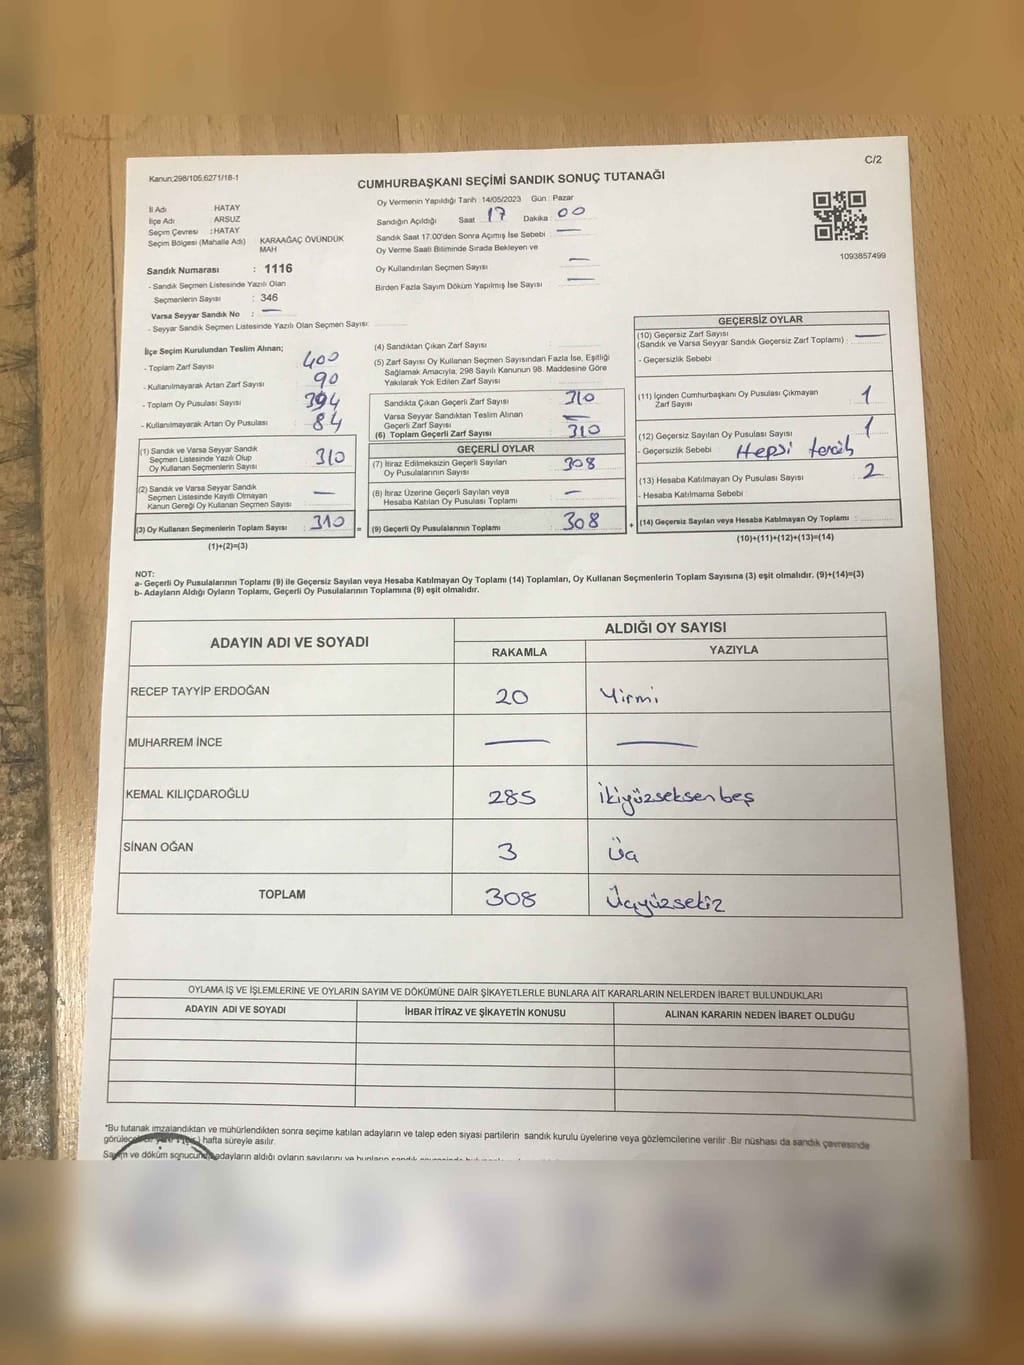 Kanun;298/105,6271/18-1
C/2
CUMHURBAŞKANI SEÇİMİ SANDIK SONUÇ TUTANAĞI
İl Adı HATAY
İlçe Adı : ARSUZ
Seçim Çevresi : HATAY
Seçim Bölgesi (Mahalle Adı) KARAAĞAÇ ÖVÜNDÜK
MAH
Sandık Numarası : 1116
- Sandık Seçmen Listesinde Yazılı Olan
Seçmenlerin Sayısı : 346
Varsa Seyyar Sandık No : —
- Seyyar Sandık Seçmen Listesinde Yazılı Olan Seçmen Sayısı:
Oy Vermenin Yapıldığı Tarih : 14/05/2023 Gün : Pazar
Sandığın Açıldığı Saat 17 Dakika 00
Sandık Saat 17:00'den Sonra Açımış İse Sebebi : —
Oy Verme Saati Bitiminde Sırada Bekleyen ve
Oy Kullandırılan Seçmen Sayısı : —
Birden Fazla Sayım Döküm Yapılmış İse Sayısı : —
1093857499
İlçe Seçim Kurulundan Teslim Alınan;
- Toplam Zarf Sayısı : 400
- Kullanılmayarak Artan Zarf Sayısı : 90
- Toplam Oy Pusulası Sayısı : 394
- Kullanılmayarak Artan Oy Pusulası : 84
(1) Sandık ve Varsa Seyyar Sandık
Seçmen Listesinde Yazılı Olup
Oy Kullanan Seçmenlerin Sayısı : 310
(2) Sandık ve Varsa Seyyar Sandık
Seçmen Listesinde Kayıtlı Olmayan
Kanun Gereği Oy Kullanan Seçmen Sayısı : —
(3) Oy Kullanan Seçmenlerin Toplam Sayısı : 310 =
(1)+(2)=(3)
(4) Sandıktan Çıkan Zarf Sayısı :
(5) Zarf Sayısı Oy Kullanan Seçmen Sayısından Fazla İse, Eşitliği
Sağlamak Amacıyla, 298 Sayılı Kanunun 98. Maddesine Göre
Yakılarak Yok Edilen Zarf Sayısı :
Sandıkta Çıkan Geçerli Zarf Sayısı : 310
Varsa Seyyar Sandıktan Teslim Alınan
Geçerli Zarf Sayısı : —
(6) Toplam Geçerli Zarf Sayısı : 310
GEÇERLİ OYLAR
(7) İtiraz Edilmeksizin Geçerli Sayılan
Oy Pusulalarının Sayısı : 308
(8) İtiraz Üzerine Geçerli Sayılan veya
Hesaba Katılan Oy Pusulası Toplamı : —
(9) Geçerli Oy Pusulalarının Toplamı : 308 +
GEÇERSİZ OYLAR
(10) Geçersiz Zarf Sayısı
(Sandık ve Varsa Seyyar Sandık Geçersiz Zarf Toplamı) : —
- Geçersizlik Sebebi :
(11) İçinden Cumhurbaşkanı Oy Pusulası Çıkmayan
Zarf Sayısı : 1
(12) Geçersiz Sayılan Oy Pusulası Sayısı : 1
- Geçersizlik Sebebi : Hepsi tercih
(13) Hesaba Katılmayan Oy Pusulası Sayısı : 2
- Hesaba Katılmama Sebebi :
(14) Geçersiz Sayılan veya Hesaba Katılmayan Oy Toplamı :
(10)+(11)+(12)+(13)=(14)
NOT:
a- Geçerli Oy Pusulalarının Toplamı (9) ile Geçersiz Sayılan veya Hesaba Katılmayan Oy Toplamı (14) Toplamları, Oy Kullanan Seçmenlerin Toplam Sayısına (3) eşit olmalıdır. (9)+(14)=(3)
b- Adayların Aldığı Oyların Toplamı, Geçerli Oy Pusulalarının Toplamına (9) eşit olmalıdır.
ADAYIN ADI VE SOYADI ALDIĞI OY SAYISI
RAKAMLA YAZIYLA
RECEP TAYYİP ERDOĞAN 20 Yirmi
MUHARREM İNCE — —
KEMAL KILIÇDAROĞLU 285 İkiyüzseksen beş
SİNAN OĞAN 3 Üç
TOPLAM 308 Üçyüzsekiz
OYLAMA İŞ VE İŞLEMLERİNE VE OYLARIN SAYIM VE DÖKÜMÜNE DAİR ŞİKAYETLERLE BUNLARA AİT KARARLARIN NELERDEN İBARET BULUNDUKLARI
ADAYIN ADI VE SOYADI İHBAR İTİRAZ VE ŞİKAYETİN KONUSU ALINAN KARARIN NEDEN İBARET OLDUĞU
*Bu tutanak imzalandıktan ve mühürlendikten sonra seçime katılan adayların ve talep eden siyasi partilerin sandık kurulu üyelerine veya gözlemcilerine verilir .Bir nüshası da sandık çevresinde
hafta süreyle asılır.
Sayım ve döküm sonucunda adayların aldığı oyların sayılarını ve bunların